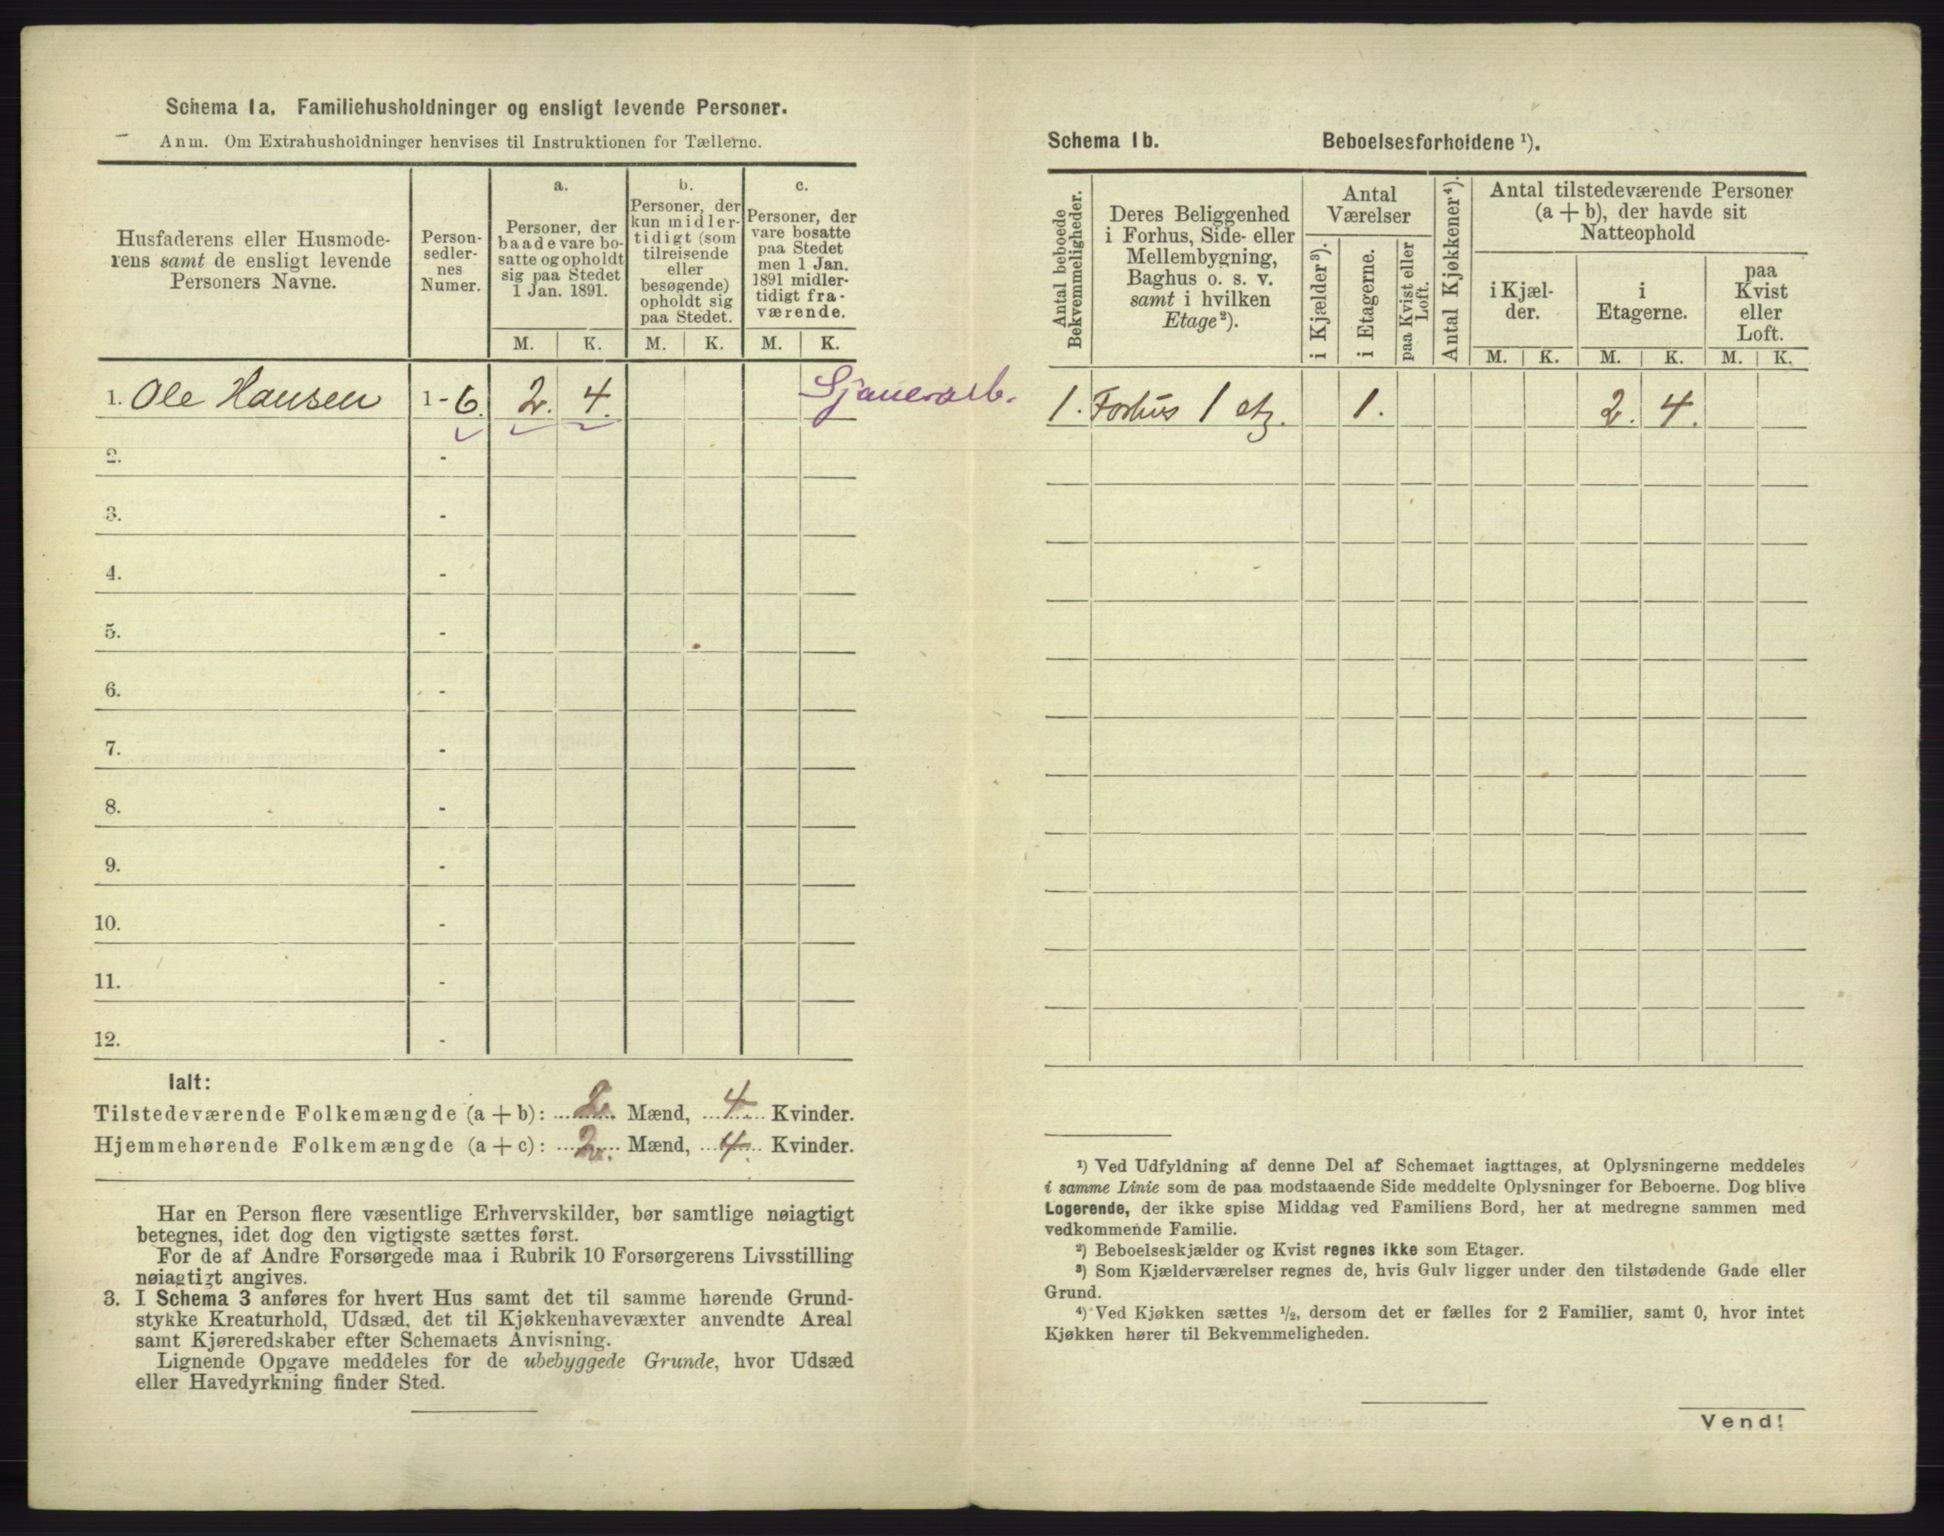 Schema 1a. Familiehusholdninger og ensligt levende Personer.
Anm. Om Extrahusholdninger henvises til Instruktionen for Tællerne.
Husfaderens eller Husmode-
rens samt de ensligt levende
Personers Navne.
Person-
sedler-
nes
Numer.
a.
Personer, der
baade vare bo-
satte og opholdt
sig paa Stedet
1 Jan. 1891.
b.
Personer, der
kun midler-
tidigt (som
tilreisende
eller
besøgende)
opholdt sig
paa Stedet.
c.
Personer, der
vare bosatte
paa Stedet
men 1 Jan.
1891 midler-
tidigt fra-
værende.
M. K. M. K. M. K.
1. Ole Hansen 1-6. 2. 4. Sjauerarb.
2. -
3. -
4. -
5. -
6. -
7. -
8. -
9. -
10. -
11. -
12. -
Ialt:
Tilstedeværende Folkemængde (a + b): 2. Mænd, 4 Kvinder.
Hjemmehørende Folkemængde (a + c): 2. Mænd, 4. Kvinder.
Har en Person flere væsentlige Erhvervskilder, bør samtlige nøiagtigt
betegnes, idet dog den vigtigste sættes først.
For de af Andre Forsørgede maa i Rubrik 10 Forsørgerens Livsstilling
nøiagtigt angives.
3. I Schema 3 anføres for hvert Hus samt det til samme hørende Grund-
stykke Kreaturhold, Udsæd, det til Kjøkkenhavevæxter anvendte Areal
samt Kjøreredskaber efter Schemaets Anvisning.
Lignende Opgave meddeles for de ubebyggede Grunde, hvor Udsæd
eller Havedyrkning finder Sted.
Schema 1b. Beboelsesforholdene ¹).
Antal beboede
Bekvemmeligheder.
Deres Beliggenhed
i Forhus, Side- eller
Mellembygning,
Baghus o. s. v.
samt i hvilken
Etage²).
Antal
Værelser
i Kjælder³).
i Etagerne.
paa Kvist eller
Loft.
Antal Kjøkkener⁴).
Antal tilstedeværende Personer
(a + b), der havde sit
Natteophold
i Kjæl-
der.
i
Etagerne.
paa
Kvist
eller
Loft.
M. K. M. K. M. K.
1. Forhus 1 etg. 1. 2. 4.
¹) Ved Udfyldning af denne Del af Schemaet iagttages, at Oplysningerne meddeles
i samme Linie som de paa modstaaende Side meddelte Oplysninger for Beboerne. Dog blive
Logerende, der ikke spise Middag ved Familiens Bord, her at medregne sammen med
vedkommende Familie.
²) Beboelseskjælder og Kvist regnes ikke som Etager.
³) Som Kjælderværelser regnes de, hvis Gulv ligger under den tilstødende Gade eller
Grund.
⁴) Ved Kjøkken sættes ½, dersom det er fælles for 2 Familier, samt 0, hvor intet
Kjøkken hører til Bekvemmeligheden.
Vend!